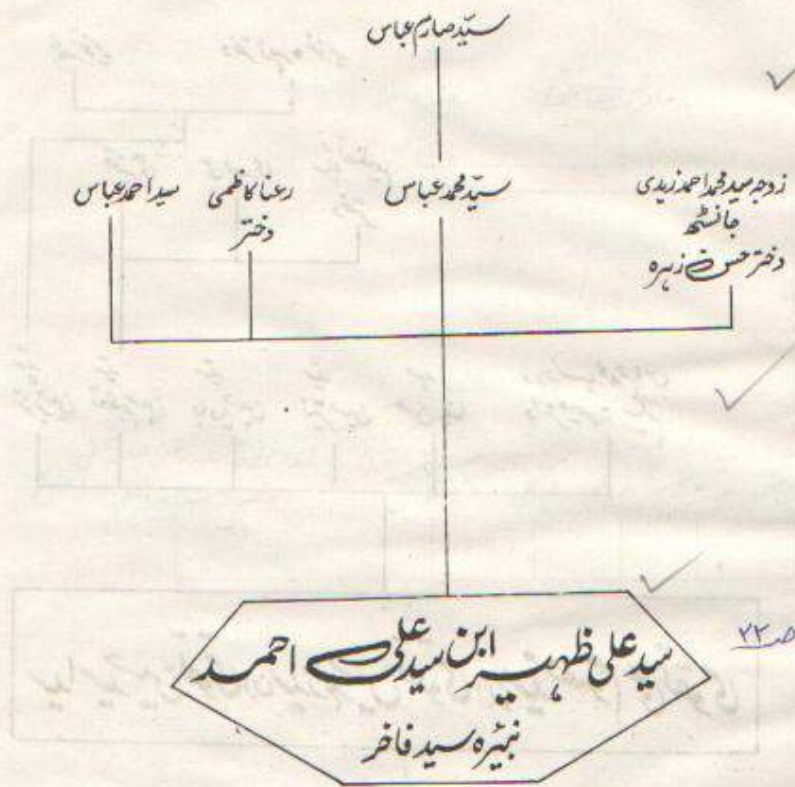 سیّد صارم عباس
زوجہ سید محمد احمد زیدی
جانسٹھ
دختر حسن زہرہ
سیّد محمد عباس
رعنا کاظمی
دختر
سید احمد عباس
سید علی ظہیر ابن سید علی احمد
نبیرہ سید فاخر
صـ ۲۲